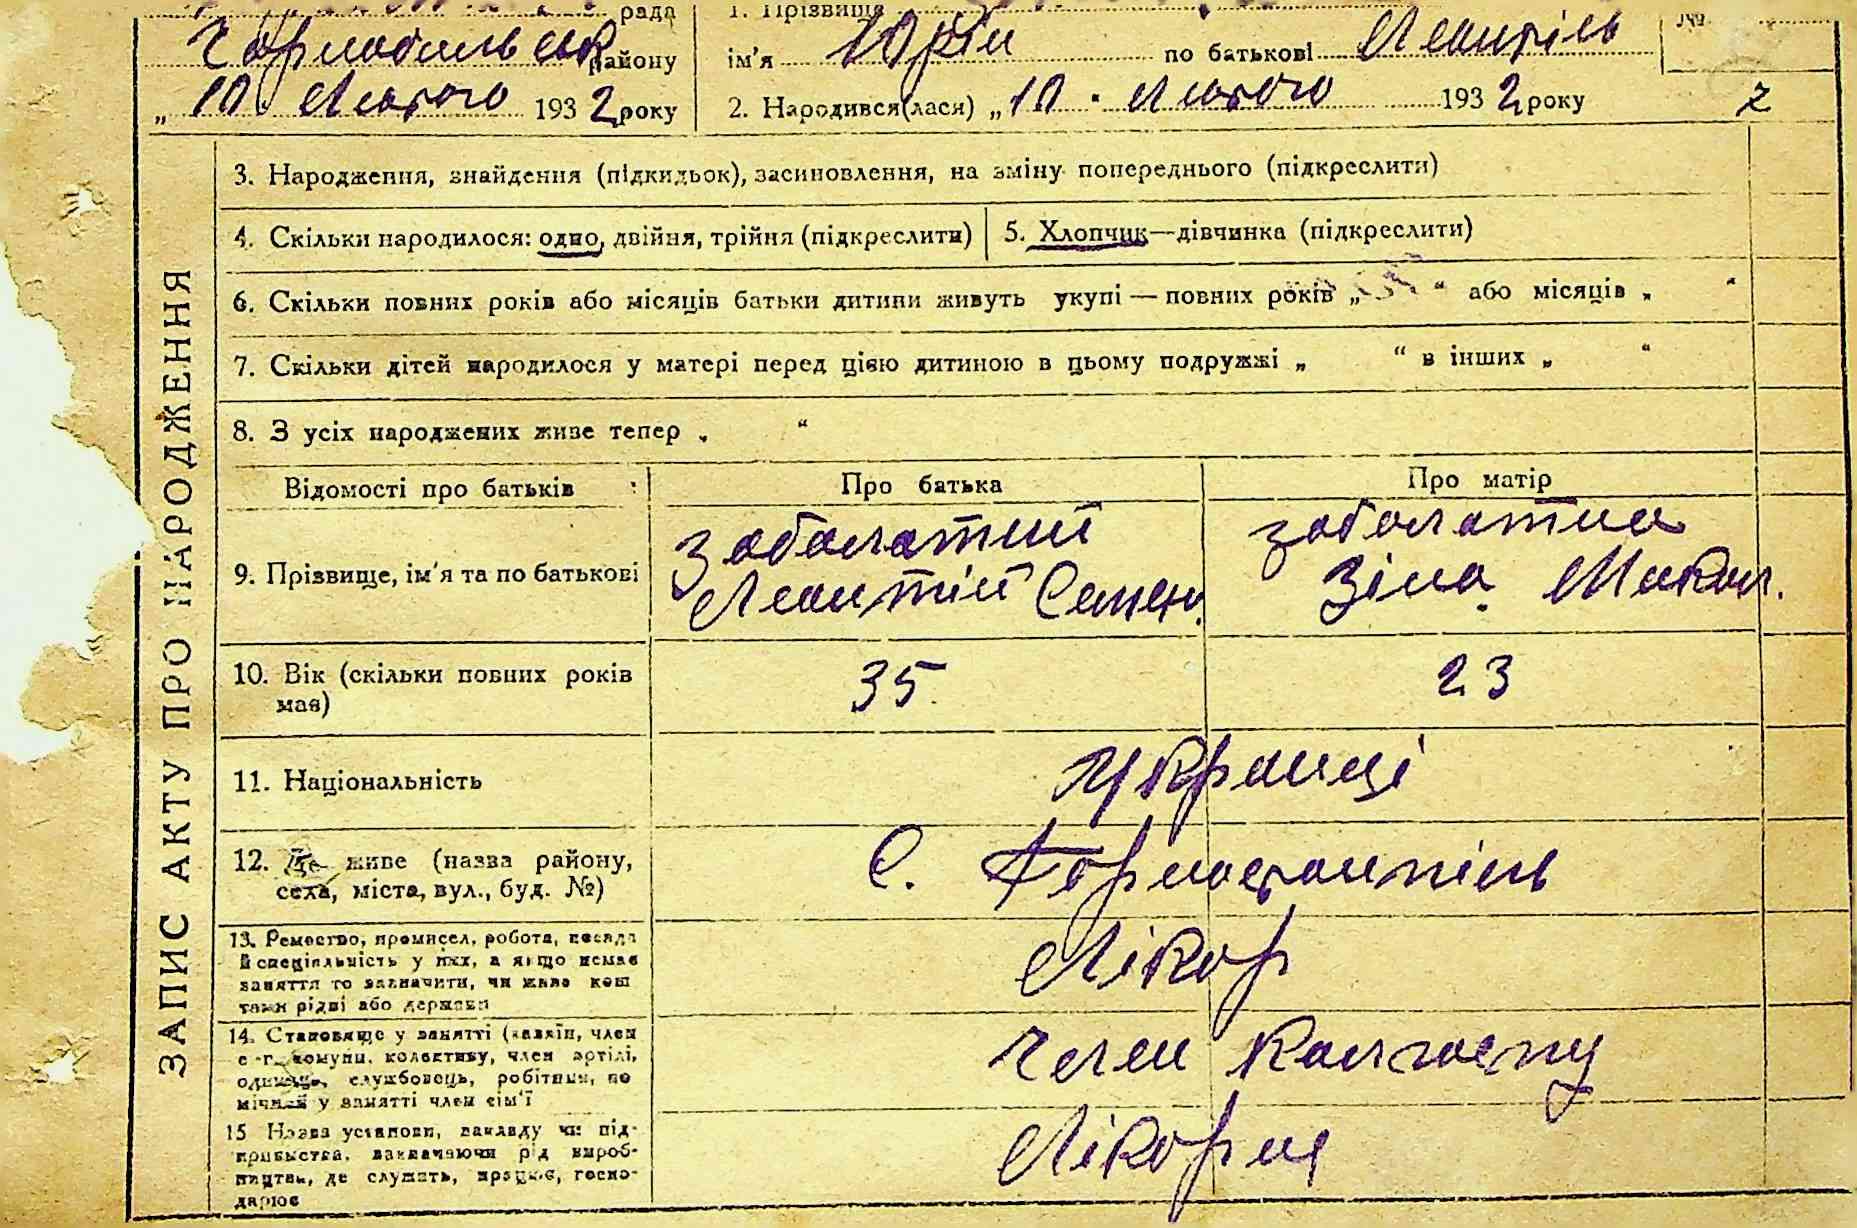 рада
1. Прізвище
№
Чорнобильськ району
ім'я Юрій по батькові Леонтіїв
„ 10. Лютого 1932 року
2. Народився(лася) „ 10. Лютого 1932 року
2
ЗАПИС АКТУ ПРО НАРОДЖЕННЯ
3. Народження, знайдення (підкидьок), засиновлення, на зміну попереднього (підкреслити)
4. Скільки народилося: одно, двійня, трійня (підкреслити)
5. Хлопчик—дівчинка (підкреслити)
6. Скільки повних років або місяців батьки дитини живуть укупі — повних років „ “ або місяців „ “
7. Скільки дітей народилося у матері перед цією дитиною в цьому подружжі „ “ в інших „ “
8. З усіх народжених живе тепер „ “
Відомості про батьків
Про батька
Про матір
9. Прізвище, ім'я та по батькові
Заболотний
Леонтій Семен.
Заболотна
Зіна Микол.
10. Вік (скільки повних років
має)
35
23
11. Національність
Українці
12. Де живе (назва району,
села, міста, вул., буд. №)
С. Горностайпіль
13. Ремество, промисел, робота, посада
й спеціяльність у них, а якщо немає
заняття то зазначити, чи живе кош
тами рідні або держави
Лікар
14. Становище у занятті (хазяїн, член
с.-г. комуни, колективу, член артілі,
одинець, службовець, робітник, по
мічний у занятті член сім'ї
Член колгоспу
15 Назва установи, закладу чи під-
приємства, зазначаючи рід вироб-
ництва, де служить, працює, госпо-
дарює